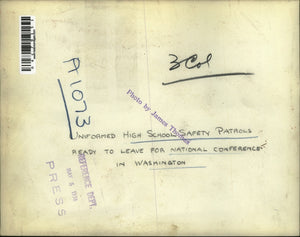 3 Col
A1073
Photo by James Thomas
UNIFORMED HIGH SCHOOL SAFETY PATROLS
READY TO LEAVE FOR NATIONAL CONFERENCE
IN WASHINGTON
REFERENCE DEPT.
MAY
PRESS